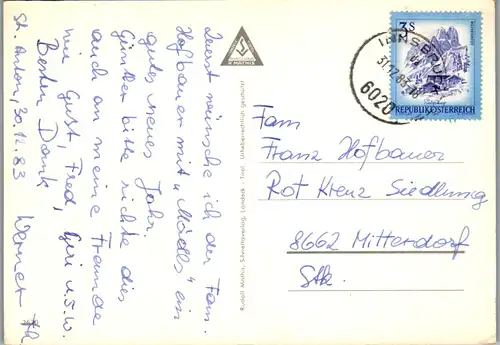 Zuerst wünsche ich der Fam.
Hofbauer mit "Mädls" ein
gutes neues Jahr.
Günther bitte richte dies
auch an meine Freunde
wie Gust, Fred, Geri u.s.w.
Besten Dank
St. Anton, 30.12.83 Werner
MATHIS
Rudolf Mathis, Silvrettaverlag, Landeck - Tirol Urheberrechtlich geschützt
3S
REPUBLIK ÖSTERREICH
INNSBRUCK
31.12.83
6020
Fam
Franz Hofbauer
Rot Kreuz Siedlung
8662 Mitterdorf
Stk.